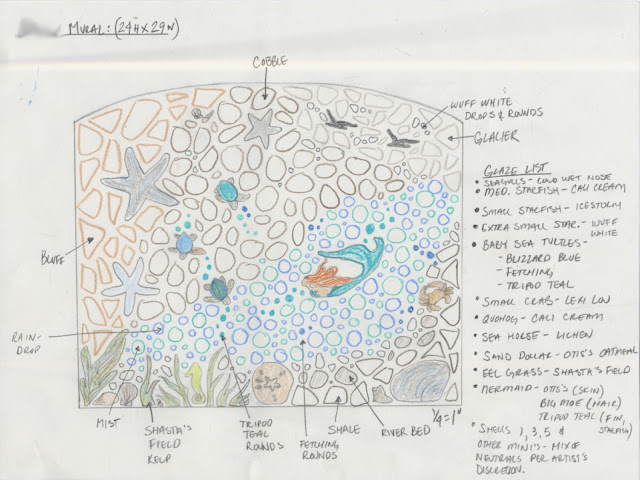 MURAL: (24H X 29W)
COBBLE
WUFF WHITE
DROPS & ROUNDS
GLACIER
BLUFF
RAIN-
DROP
MIST
SHASTA'S
FIELD
KELP
TRIPOD
TEAL
ROUNDS
FETCHING
ROUNDS
SHALE
RIVER BED
1/4 = 1"
GLAZE LIST
• SEAGULLS - COLD WET NOSE
• MED. STARFISH - CALI CREAM
• SMALL STARFISH - ICESTORM
• EXTRA SMALL STAR. - WUFF
WHITE
• BABY SEA TURTLES -
- BLIZZARD BLUE
- FETCHING
- TRIPOD TEAL
• SMALL CRAB - LEXI LOU
• QUOHOG - CALI CREAM
• SEA HORSE - LICHEN
• SAND DOLLAR - OTIS'S OATMEAL
• EEL GRASS - SHASTA'S FIELD
• MERMAID - OTIS'S (SKIN)
BIG MOE (HAIR)
TRIPOD TEAL (FIN,
• SHELLS 1, 3, 5 &
OTHER MINI'S - MIX OF
NEUTRALS PER ARTIST'S
DISCRETION.